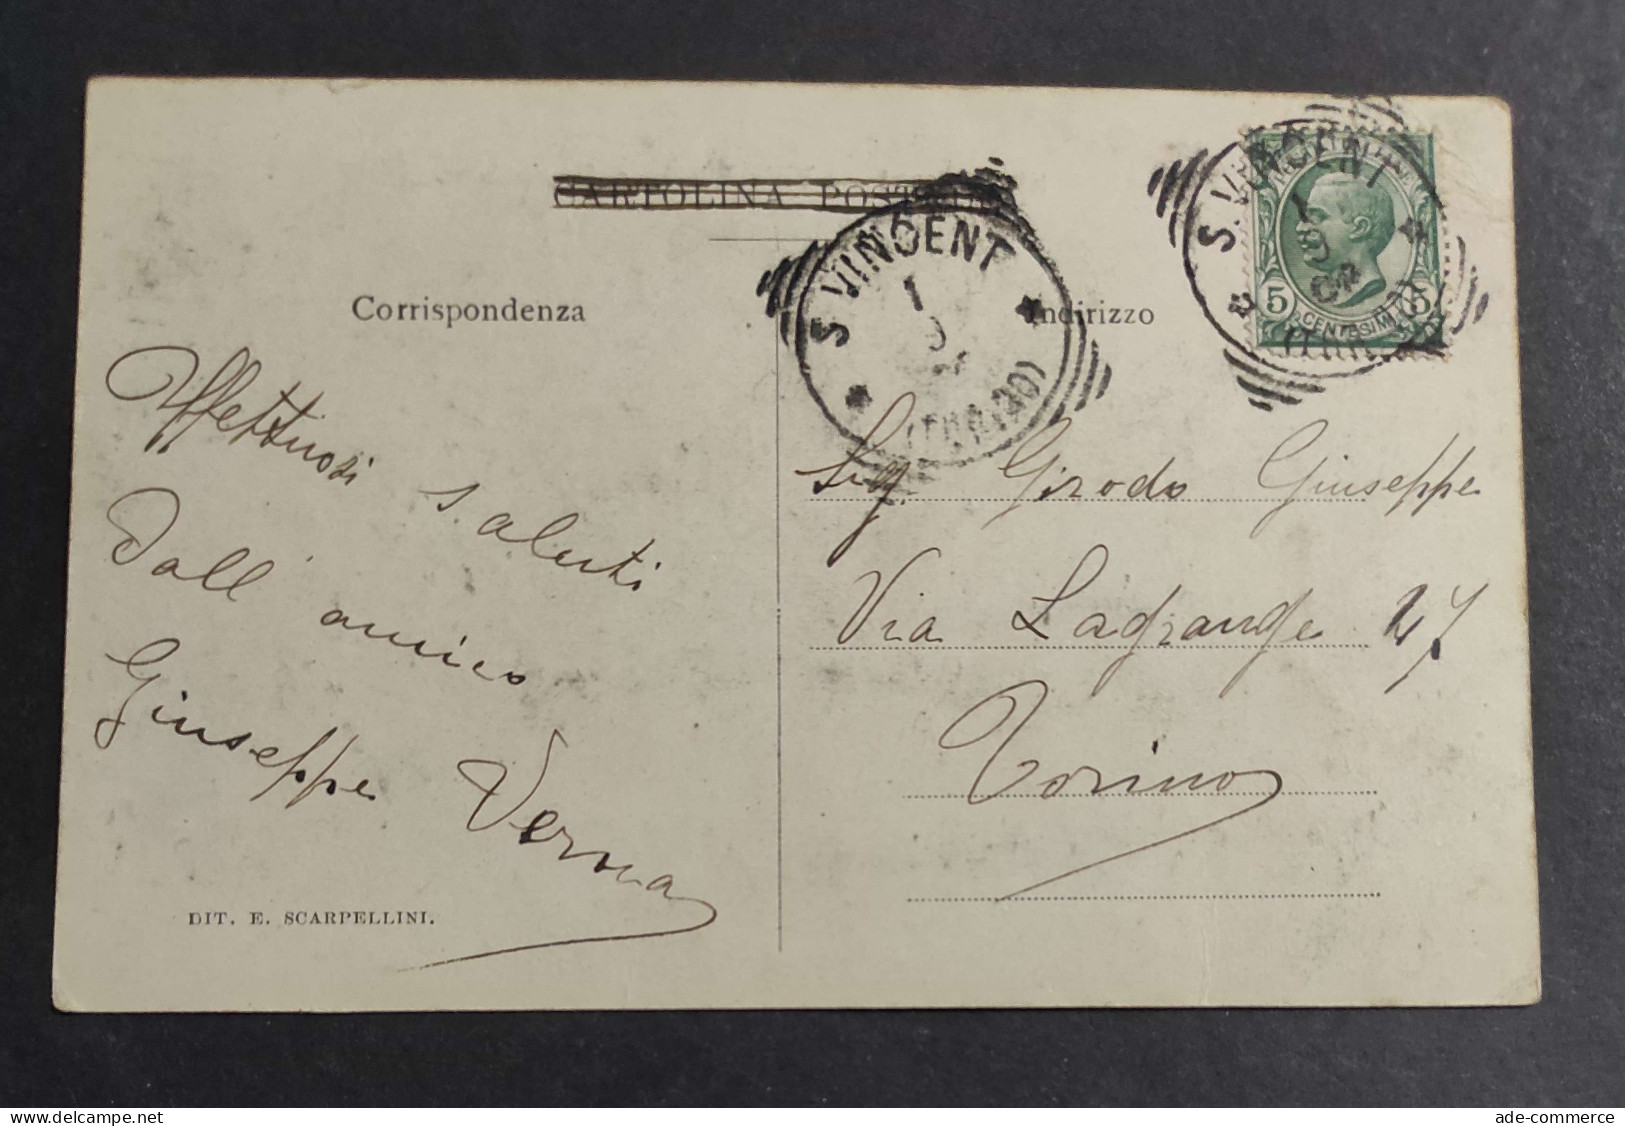 CARTOLINA POSTALE
Corrispondenza
Indirizzo
S. VINCENT
1
9
(TORINO)
S. VINCENT
1
9
(TORINO)
5 CENTESIMI 5
Affettuosi
saluti
Dall' amico
Giuseppe Verna
DIT. E. SCARPELLINI.
Sig. Girodo Giuseppe
Via Lagrange 27
Torino
delcampe.net
ade-commerce